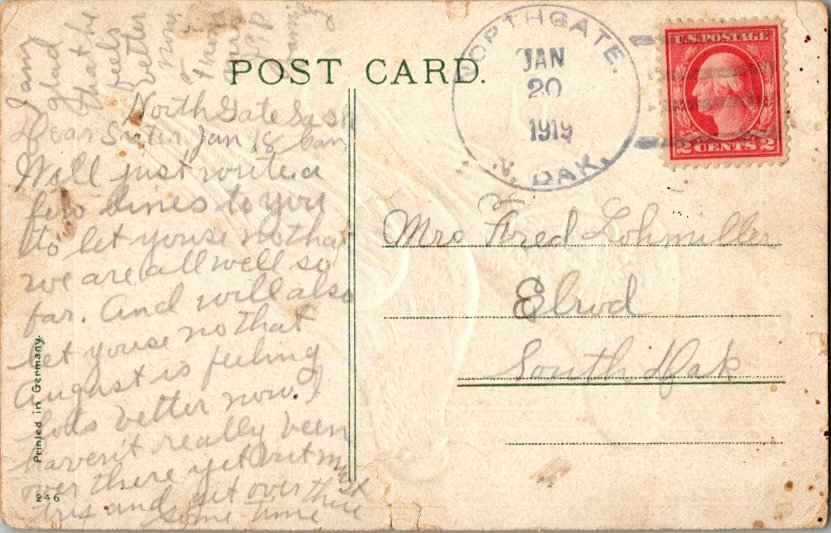 POST CARD.
NORTHGATE.
JAN
20
1919
N. DAK.
U.S. POSTAGE
2 CENTS 2
North Gate Sask
Dear Sister Jan 18
Will just write a
few lines to you
to let youse no that
we are all well so
far. And will also
let youse no that
August is feeling
lots better now. I
haven't really been
over there yet but must
try and get over there
some time
I am
glad
that he
feels
better
now.
Mrs Fred Lohmiller
Elrod
South Dak
Printed in Germany.
No 46